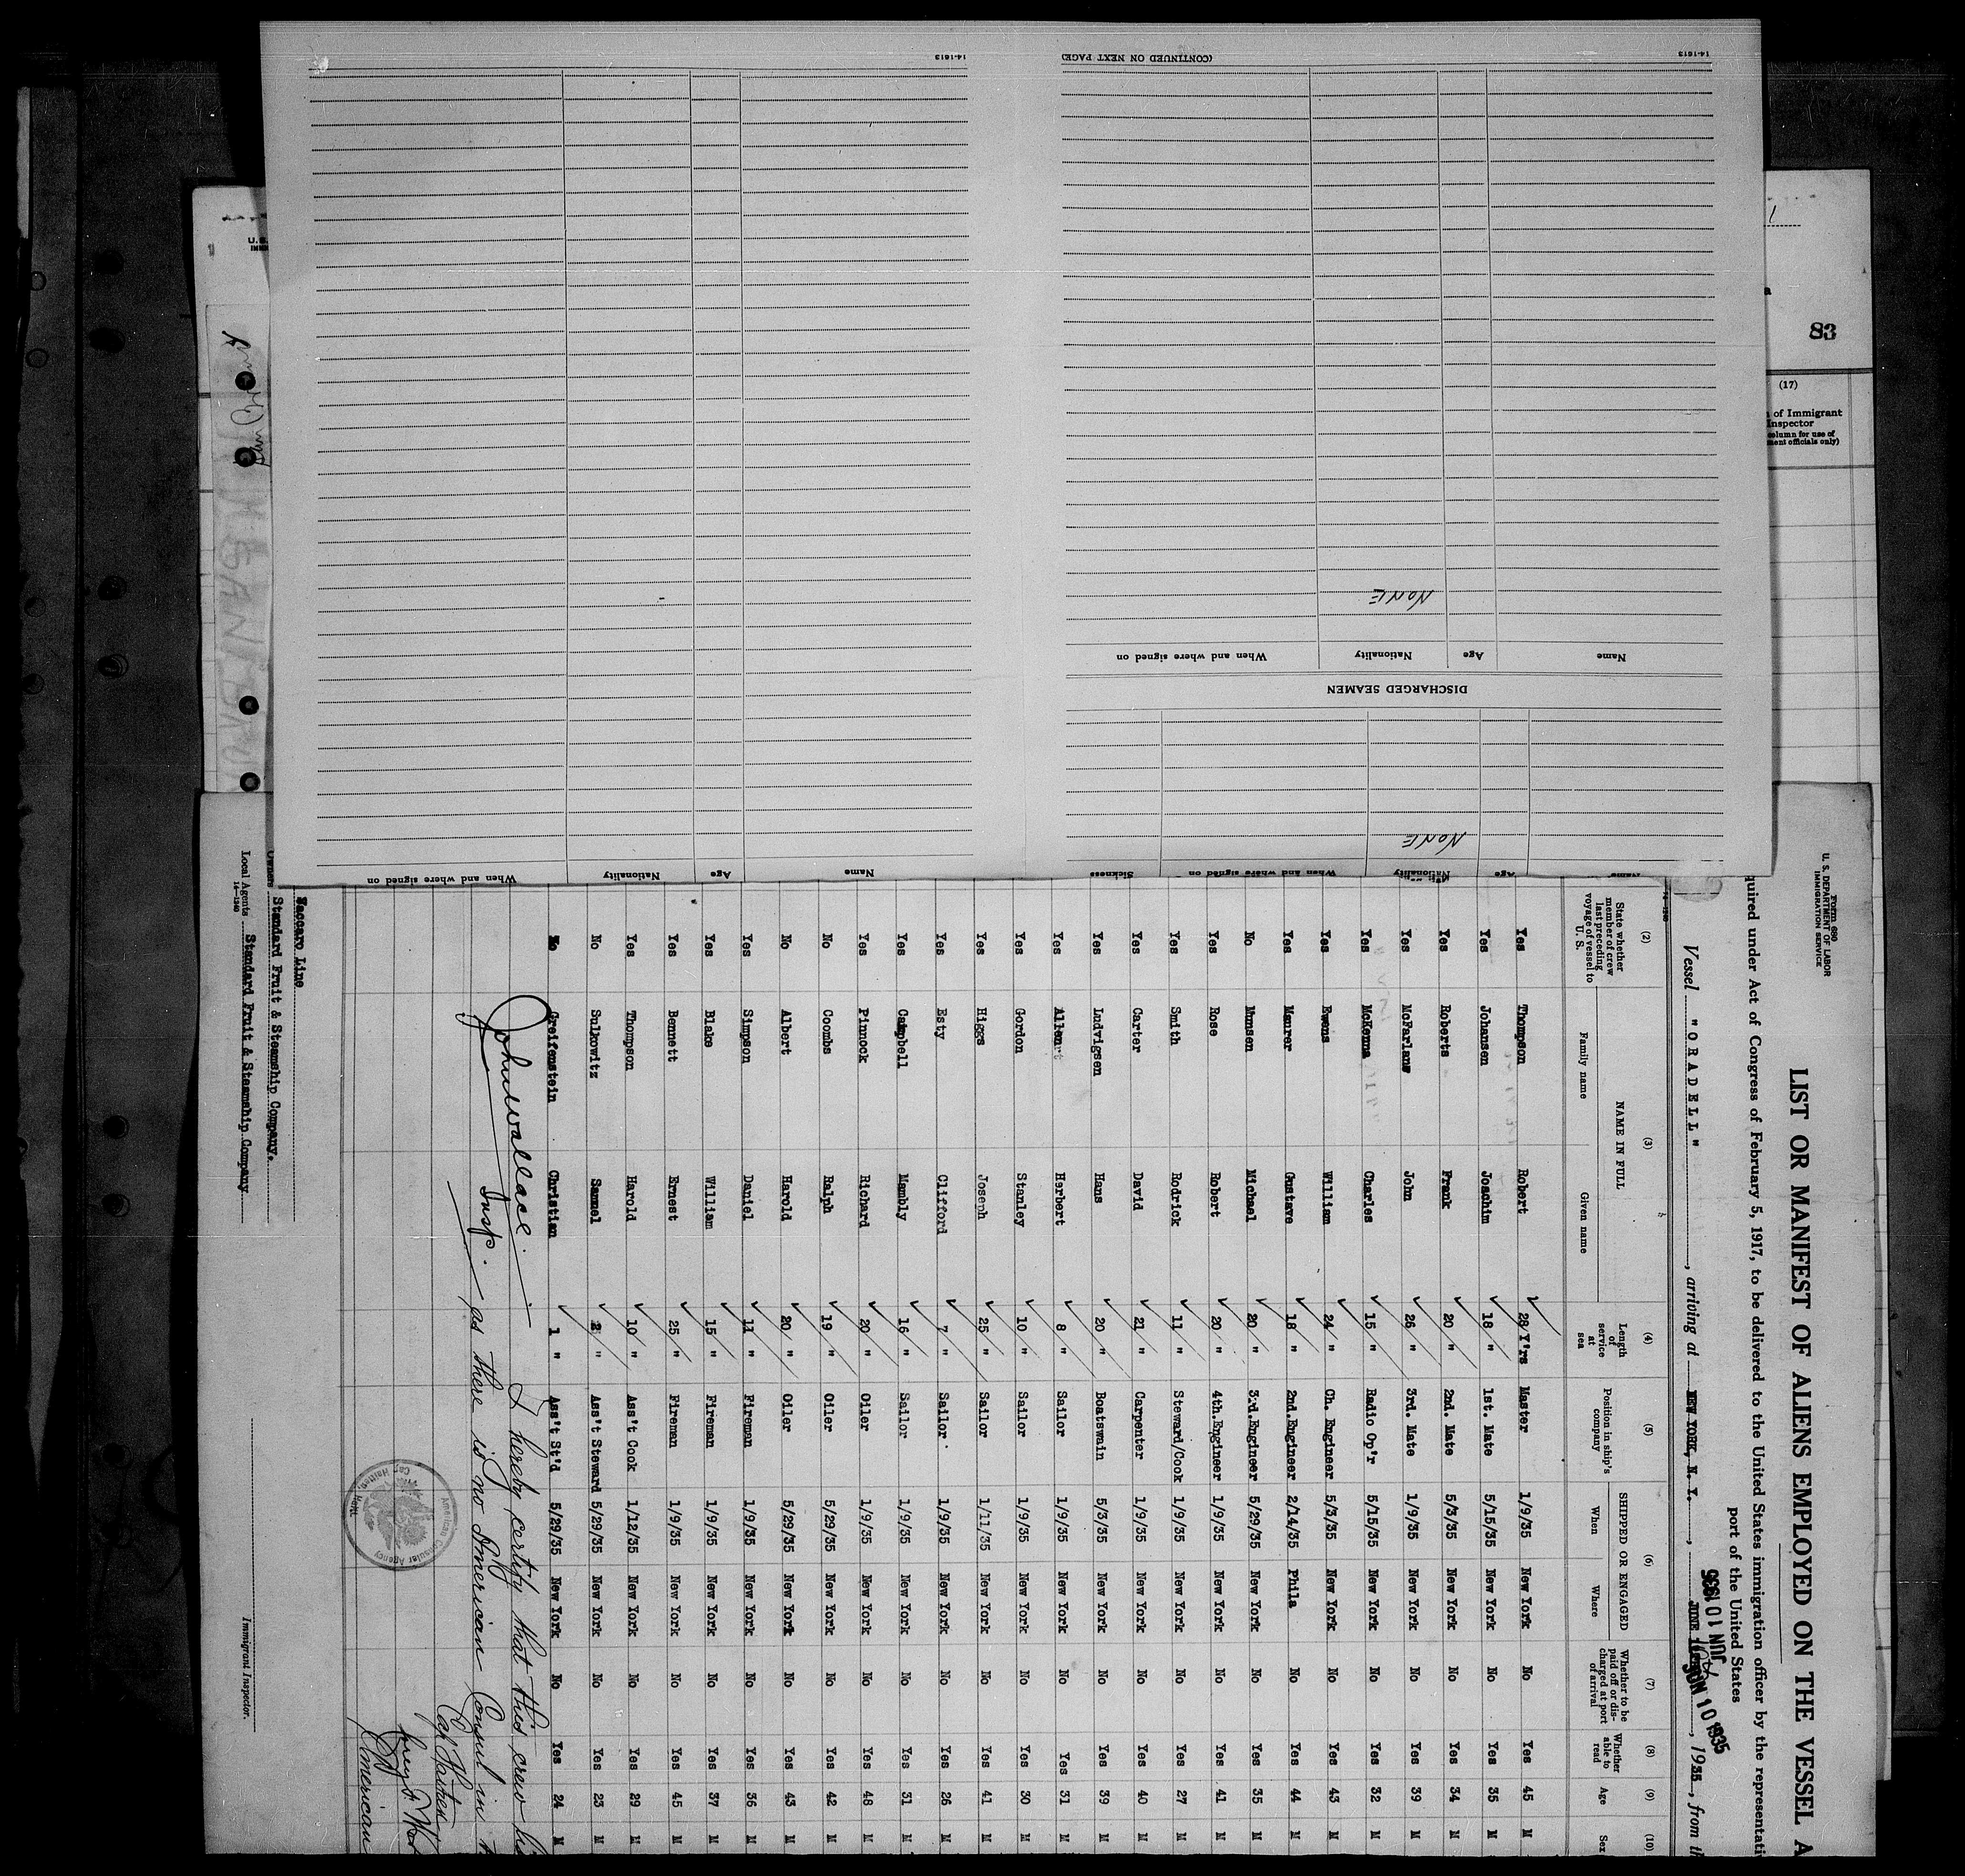 14-1613
(CONTINUED ON NEXT PAGE)
14-1613
NONE
Name
Age
Nationality
When and where signed on
DISCHARGED SEAMEN
NONE
Age
Nationality
When and where signed on
Sickness
Name
Age
Nationality
When and where signed on
83
(17)
of Immigrant
Inspector
column for use of
officials only)
Form 680
U. S. DEPARTMENT OF LABOR
IMMIGRATION SERVICE
LIST OR MANIFEST OF ALIENS EMPLOYED ON THE VESSEL A
quired under Act of Congress of February 5, 1917, to be delivered to the United States immigration officer by the representati
port of the United States
Vessel "ORADELL", arriving at NEW YORK, N. Y., JUNE 1935, from th
JUN 10 1935
JUN 10 1935
(2) (3) (4) (5) (6) (7) (8) (9) (10)
State whether member of crew last preceding voyage of vessel to U. S.
NAME IN FULL
Family name Given name
Length of service at sea
Position in ship's company
SHIPPED OR ENGAGED
When Where
Whether to be paid off or discharged at port of arrival
Whether able to read
Age
Sex
Yes Thompson Robert 28 Y'rs Master 1/9/35 New York No Yes 45 M
Yes Johansen Joachim 18 " 1st. Mate 5/15/35 New York No Yes 35 M
Yes Roberts Frank 20 " 2nd. Mate 5/3/35 New York No Yes 34 M
Yes McFarlane John 26 " 3rd. Mate 1/9/35 New York No Yes 39 M
Yes McKenna Charles 15 " Radio Op'r 5/15/35 New York No Yes 32 M
Yes Ewens William 24 " Ch. Engineer 5/3/35 New York No Yes 43 M
Yes Maurer Gustave 18 " 2nd.Engineer 2/14/35 Phila No Yes 44 M
No Munsen Michael 20 " 3rd.Engineer 5/29/35 New York No Yes 35 M
Yes Rose Robert 20 " 4th.Engineer 1/9/35 New York No Yes 41 M
Yes Smith Rodrick 11 " Steward/Cook 1/9/35 New York No Yes 27 M
Yes Carter David 21 " Carpenter 1/9/35 New York No Yes 40 M
Yes Ludvigsen Hans 20 " Boatswain 5/3/35 New York No Yes 39 M
Yes Allen Herbert 8 " Sailor 1/9/35 New York No Yes 31 M
Yes Gordon Stanley 10 " Sailor 1/9/35 New York No Yes 30 M
Yes Higgs Joseph 25 " Sailor 1/11/35 New York No Yes 41 M
Yes Esty Clifford 7 " Sailor 1/9/35 New York No Yes 26 M
Yes Campbell Mambly 16 " Sailor 1/9/35 New York No Yes 31 M
Yes Pinnock Richard 20 " Oiler 1/9/35 New York No Yes 48 M
No Coombs Ralph 19 " Oiler 5/29/35 New York No Yes 42 M
No Albert Harold 20 " Oiler 5/29/35 New York No Yes 43 M
Yes Simpson Daniel 11 " Fireman 1/9/35 New York No Yes 36 M
Yes Blake William 15 " Fireman 1/9/35 New York No Yes 37 M
Yes Bennett Ernest 25 " Fireman 1/9/35 New York No Yes 45 M
Yes Thompson Harold 10 " Ass't Cook 1/12/35 New York No Yes 29 M
No Sulkowitz Samuel 2 " Ass't Steward 5/29/35 New York No Yes 23 M
No Greifenstein Christian 1 " Ass't St'd 5/29/35 New York No Yes 24 M
John Wallace
Insp.
I hereby certify that this crew
as there is no American Consul in
Cap Haitien
American
American Consular Agency
Cap Haitien, Haiti
Vaccaro Line
Owners Standard Fruit & Steamship Company.
Local Agents Standard Fruit & Steamship Company
14-1240
Immigrant Inspector.